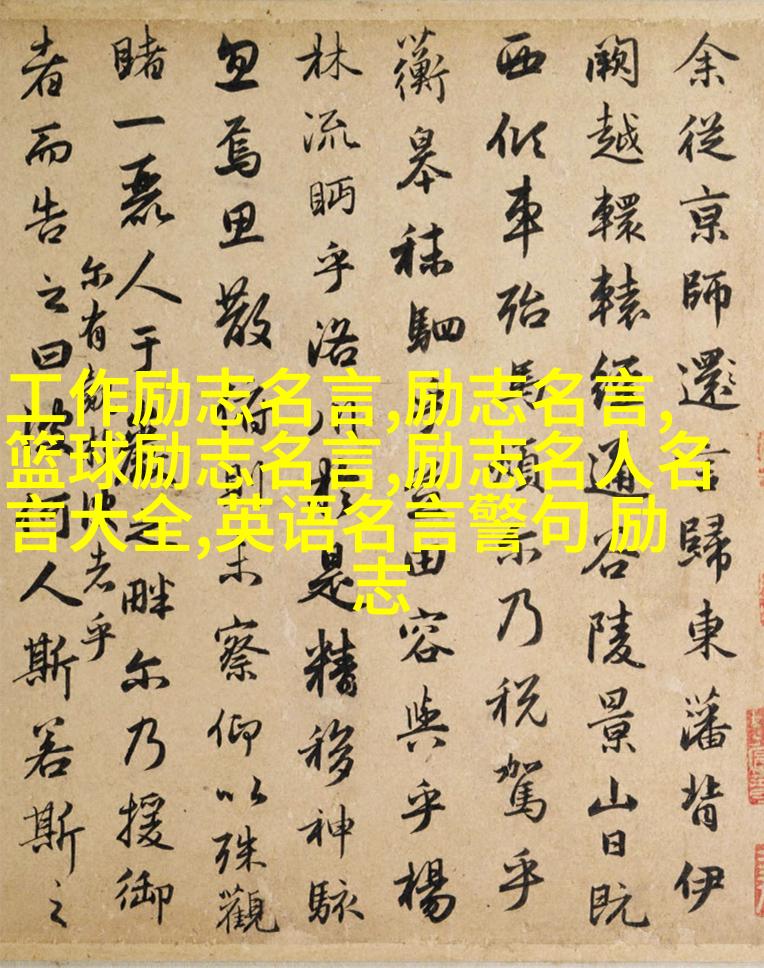 余從京師還言歸東藩背伊
闕越轘轅經通谷陵景山日既
西傾車殆馬煩尔乃税駕乎
蘅皋秣駟乎芝田容與乎楊
林流眄乎洛川於是精移神駭
忽焉思散俯則未察仰以殊觀
睹一麗人于巖之畔尔乃援御
尔有覿於彼者乎
者而告之曰彼何人斯若斯之
工作励志名言,励志名言,
篮球励志名言,励志名人名
言大全,英语名言警句 励
志